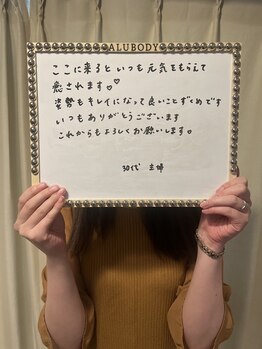 ALUBODY
ここに来るといつも元気をもらえて
癒されます♡♡
姿勢もキレイになって良いことずくめです
いつもありがとうございます
これからもよろしくお願いします。
30代 主婦